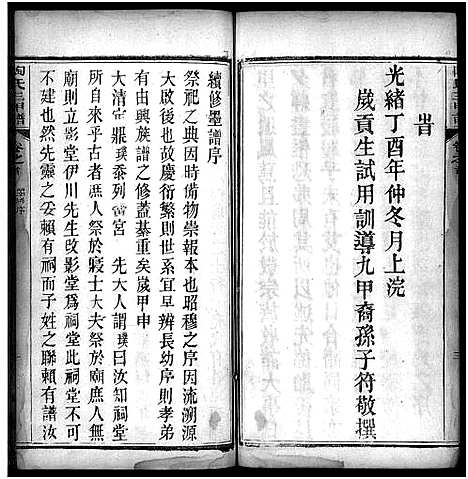 旹
光緒丁酉年仲冬月上浣
歲貢生試用訓導九甲裔孫子符敬撰
續修墨譜序
祭祀之典因時備物崇報本也昭穆之序因流溯源
大啟後也葢族慶衍繁則世系宜早辨長幼序則孝弟
有由興族譜之修蓋綦重矣歲甲申
大清定鼎璞忝列黌宮　先大人謂璞曰汝知祠堂
所自來乎古者庶人祭於寢士大夫祭於廟庶人無
廟則立影堂伊川先生改影堂為祠堂此祠堂不可
不建也然先靈之妥賴有祠而子姓之聯賴有譜汝